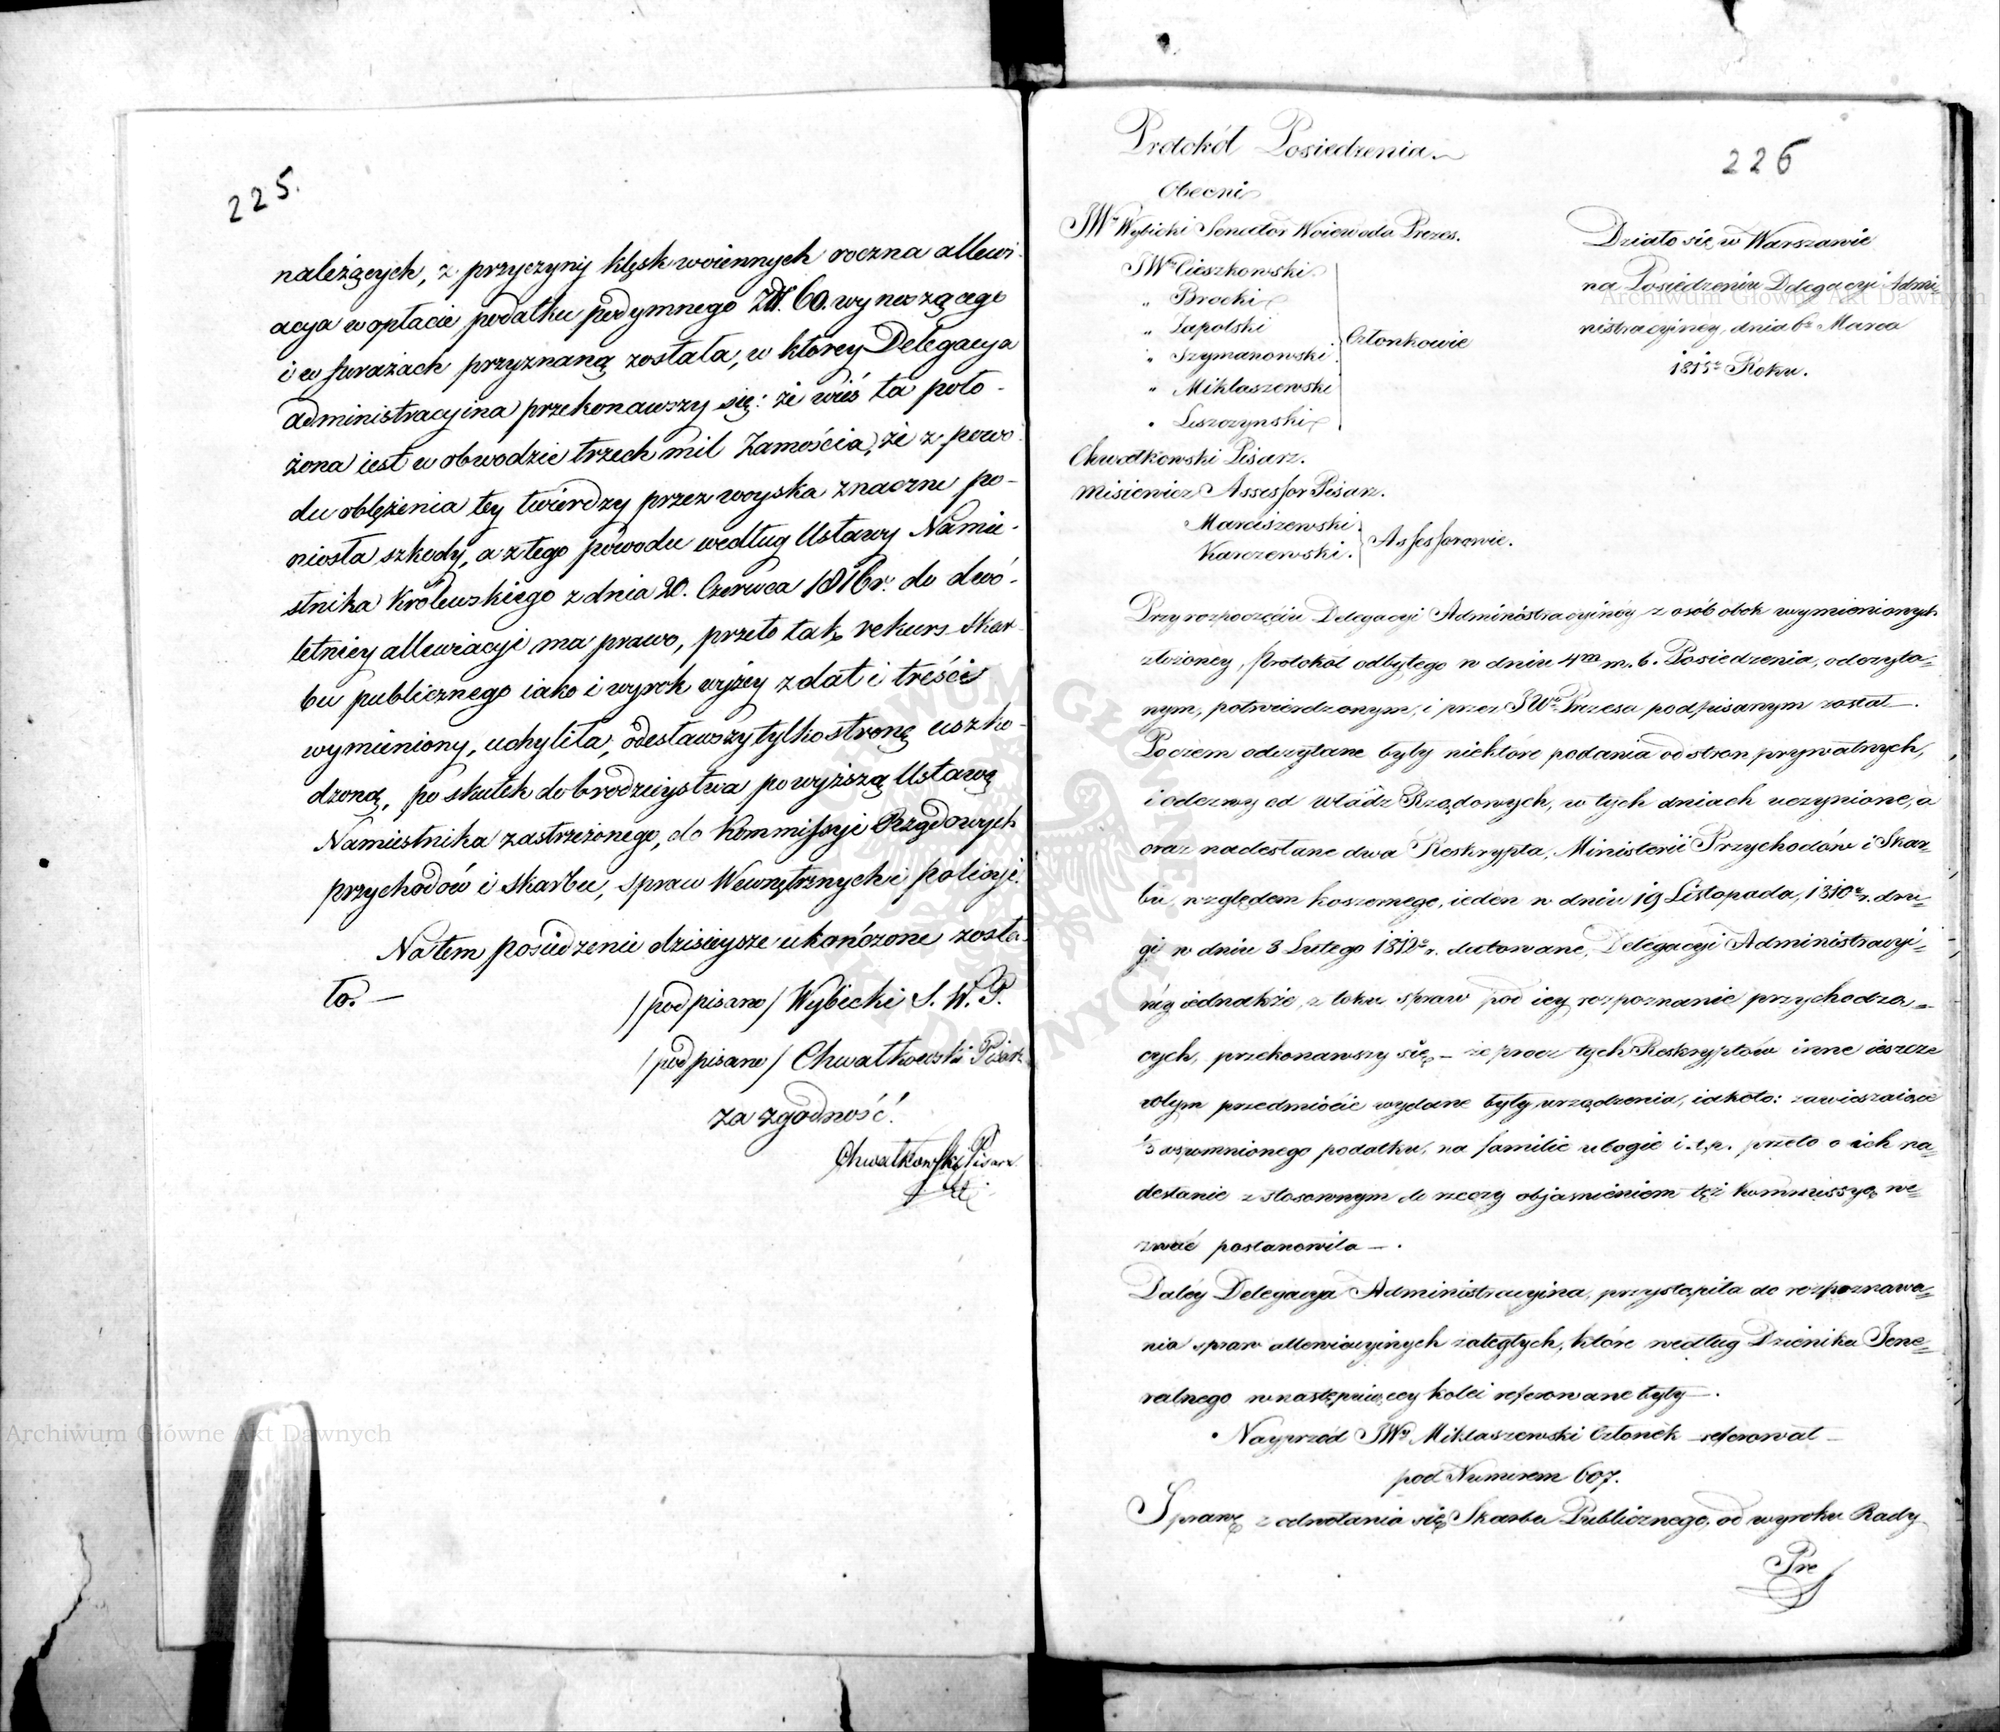 225.
należących, z przyczyny klęsk woiennych roczna allewi-
acya w opłacie podatku podymnego Zł. 60. wynoszącego
i w furażach przyznaną została, w którey Delegacya
administracyina przekonawszy się: że wieś ta poło-
żona iest w obwodzie trzech mil Zamościa, że z powo-
du oblężenia tey twierdzy przez woyska znaczne po-
niosła szkody, a z tego powodu według Ustawy Namie-
stnika Królewskiego z dnia 20. Czerwca 1816 r. do dwó-
letniey allewiacyi ma prawo, przeto tak rekurs Skar-
bu publicznego iako i wyrok wyżey z dat i treści
wymieniony, uchyliła, odesławszy tylko stronę uszko-
dzoną, po skutek dobrodzieystwa powyższą Ustawą
Namiestnika zastrzeżonego, do Kommissyi Rządowych
przychodów i skarbu, spraw Wewnętrznych i policyi.
Na tem posiedzenie dzisieysze ukończone zosta-
ło. —
/podpisano/ Wybicki S. W. P.
/podpisano/ Chwatkowski Pisarz
za zgodność!
Chwatkowski Pisarz
226
Protokół Posiedzenia
Obecni
JW Wybicki Senator Woiewoda Prezes.
JW Cieszkowski
" Brocki
" Zapolski
" Szymanowski
" Miklaszewski
" Leszczynski
Członkowie
Chwatkowski Pisarz.
Misiewicz Assessor Pisarz.
Marciszewski
Karczewski.
Assessorowie.
Działo się w Warszawie
na Posiedzeniu Delegacyi Admi-
nistracyiney, dnia 6º Marca
181 Roku.
Przy rozpoczęciu Delegacyi Administracyinéy z osób obok wymienionych
złożoney, Protokół odbytego w dniu 4m m. b. Posiedzenia, odczyta-
nym, potwierdzonym, i przez JWo Prezesa podpisanym został —.
Poczem odczytane były niektóre podania od stron prywatnych,
i odezwy od Władz Rządowych, w tych dniach uczynione, a
oraz nadesłane dwa Reskrypta, Ministerii Przychodów i Skar-
bu, względem koszernego, ieden w dniu 19 Listopada, 1810 r. dru-
gi w dniu 3 Lutego 1812 r. datowane, Delegacyi Administracyi-
néy iednakże, z toku spraw pod iey rozpoznanie przychodzą-
cych, przekonawszy się — że procz tych Reskryptów inne ieszcze
w tym przedmiocie wydane były urządzenia, iakoto: zawieszaiące
1/3 wspomnionego podatku, na familie ubogie i. t. p. przeto o ich na-
desłanie z stosownym do rzeczy objaśnieniem też Kommissyę we-
zwać postanowiła —.
Daléy Delegacya Administracyina, przystąpiła do rozpoznawa-
nia spraw allewiacyinych zaległych, które według Dziénika Jene-
ralnego w następuiącey kolei referowane były —.
Nayprzód JWy Miklaszewski Członek referował —
pod Numerem 607.
Sprawę z odwołania się Skarbu Publicznego, od wyroku Rady
Pre
Archiwum Główne Akt Dawnych
Archiwum Główne Akt Dawnych
ARCHIWUM GŁÓWNE AKT DAWNYCH